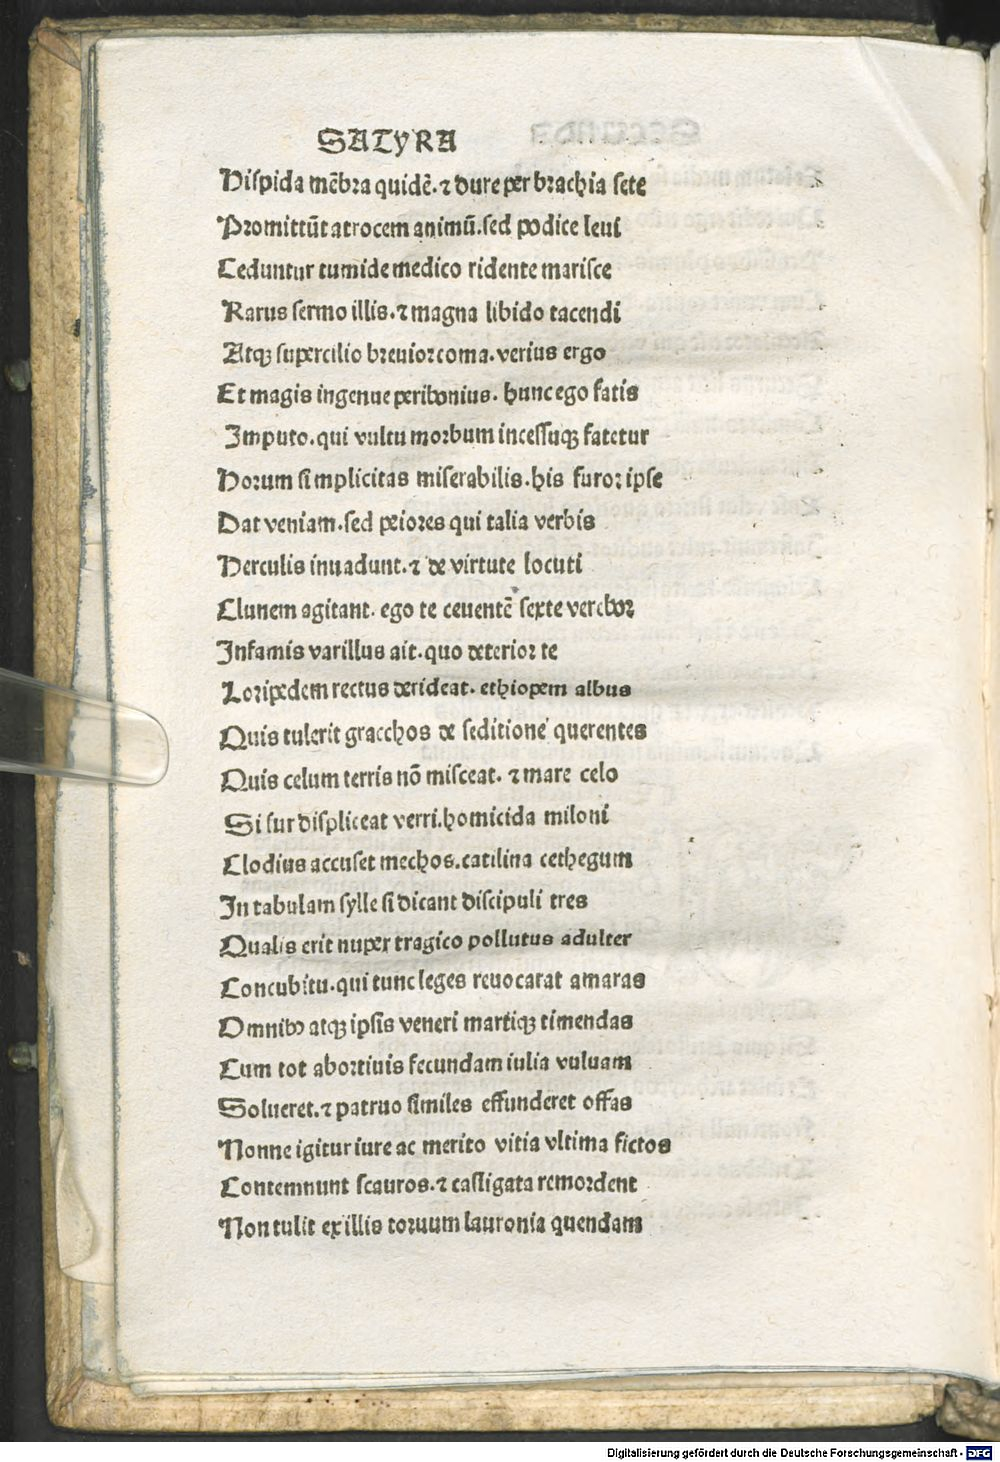 SATYRA
Hispida mẽbra quidẽ.⁊ dure per brachia sete
Promittũt atrocem animũ.sed podice leui
Ceduntur tumide medico ridente marisce
Rarus sermo illis.⁊ magna libido tacendi
Atqꝫ supercilio breuior coma.verius ergo
Et magis ingenue peribonius. hunc ego fatis
Imputo.qui vultu morbum incessuqꝫ fatetur
Horum simplicitas miserabilis.his furor ipse
Dat veniam.sed peiores qui talia verbis
Herculis inuadunt.⁊ de virtute locuti
Clunem agitant. ego te ceuentẽ sexte verebor
Infamis varillus ait.quo deterior te
Loripedem rectus derideat. ethiopem albus
Quis tulerit gracchos de seditione querentes
Quis celum terris nõ misceat. ⁊ mare celo
Si fur displiceat verri.homicida miloni
Clodius accuset mechos.catilina cethegum
In tabulam sylle si dicant discipuli tres
Qualis erit nuper tragico pollutus adulter
Concubitu.qui tunc leges reuocarat amaras
Omnibꝰ atqꝫ ipsis veneri martiqꝫ timendas
Cum tot abortiuis fecundam iulia vuluam
Solueret.⁊ patruo similes effunderet offas
Nonne igitur iure ac merito vitia vltima fictos
Contemnunt scauros.⁊ castigata remordent
Non tulit ex illis toruum lauronia quendam
Digitalisierung gefördert durch die Deutsche Forschungsgemeinschaft - DFG